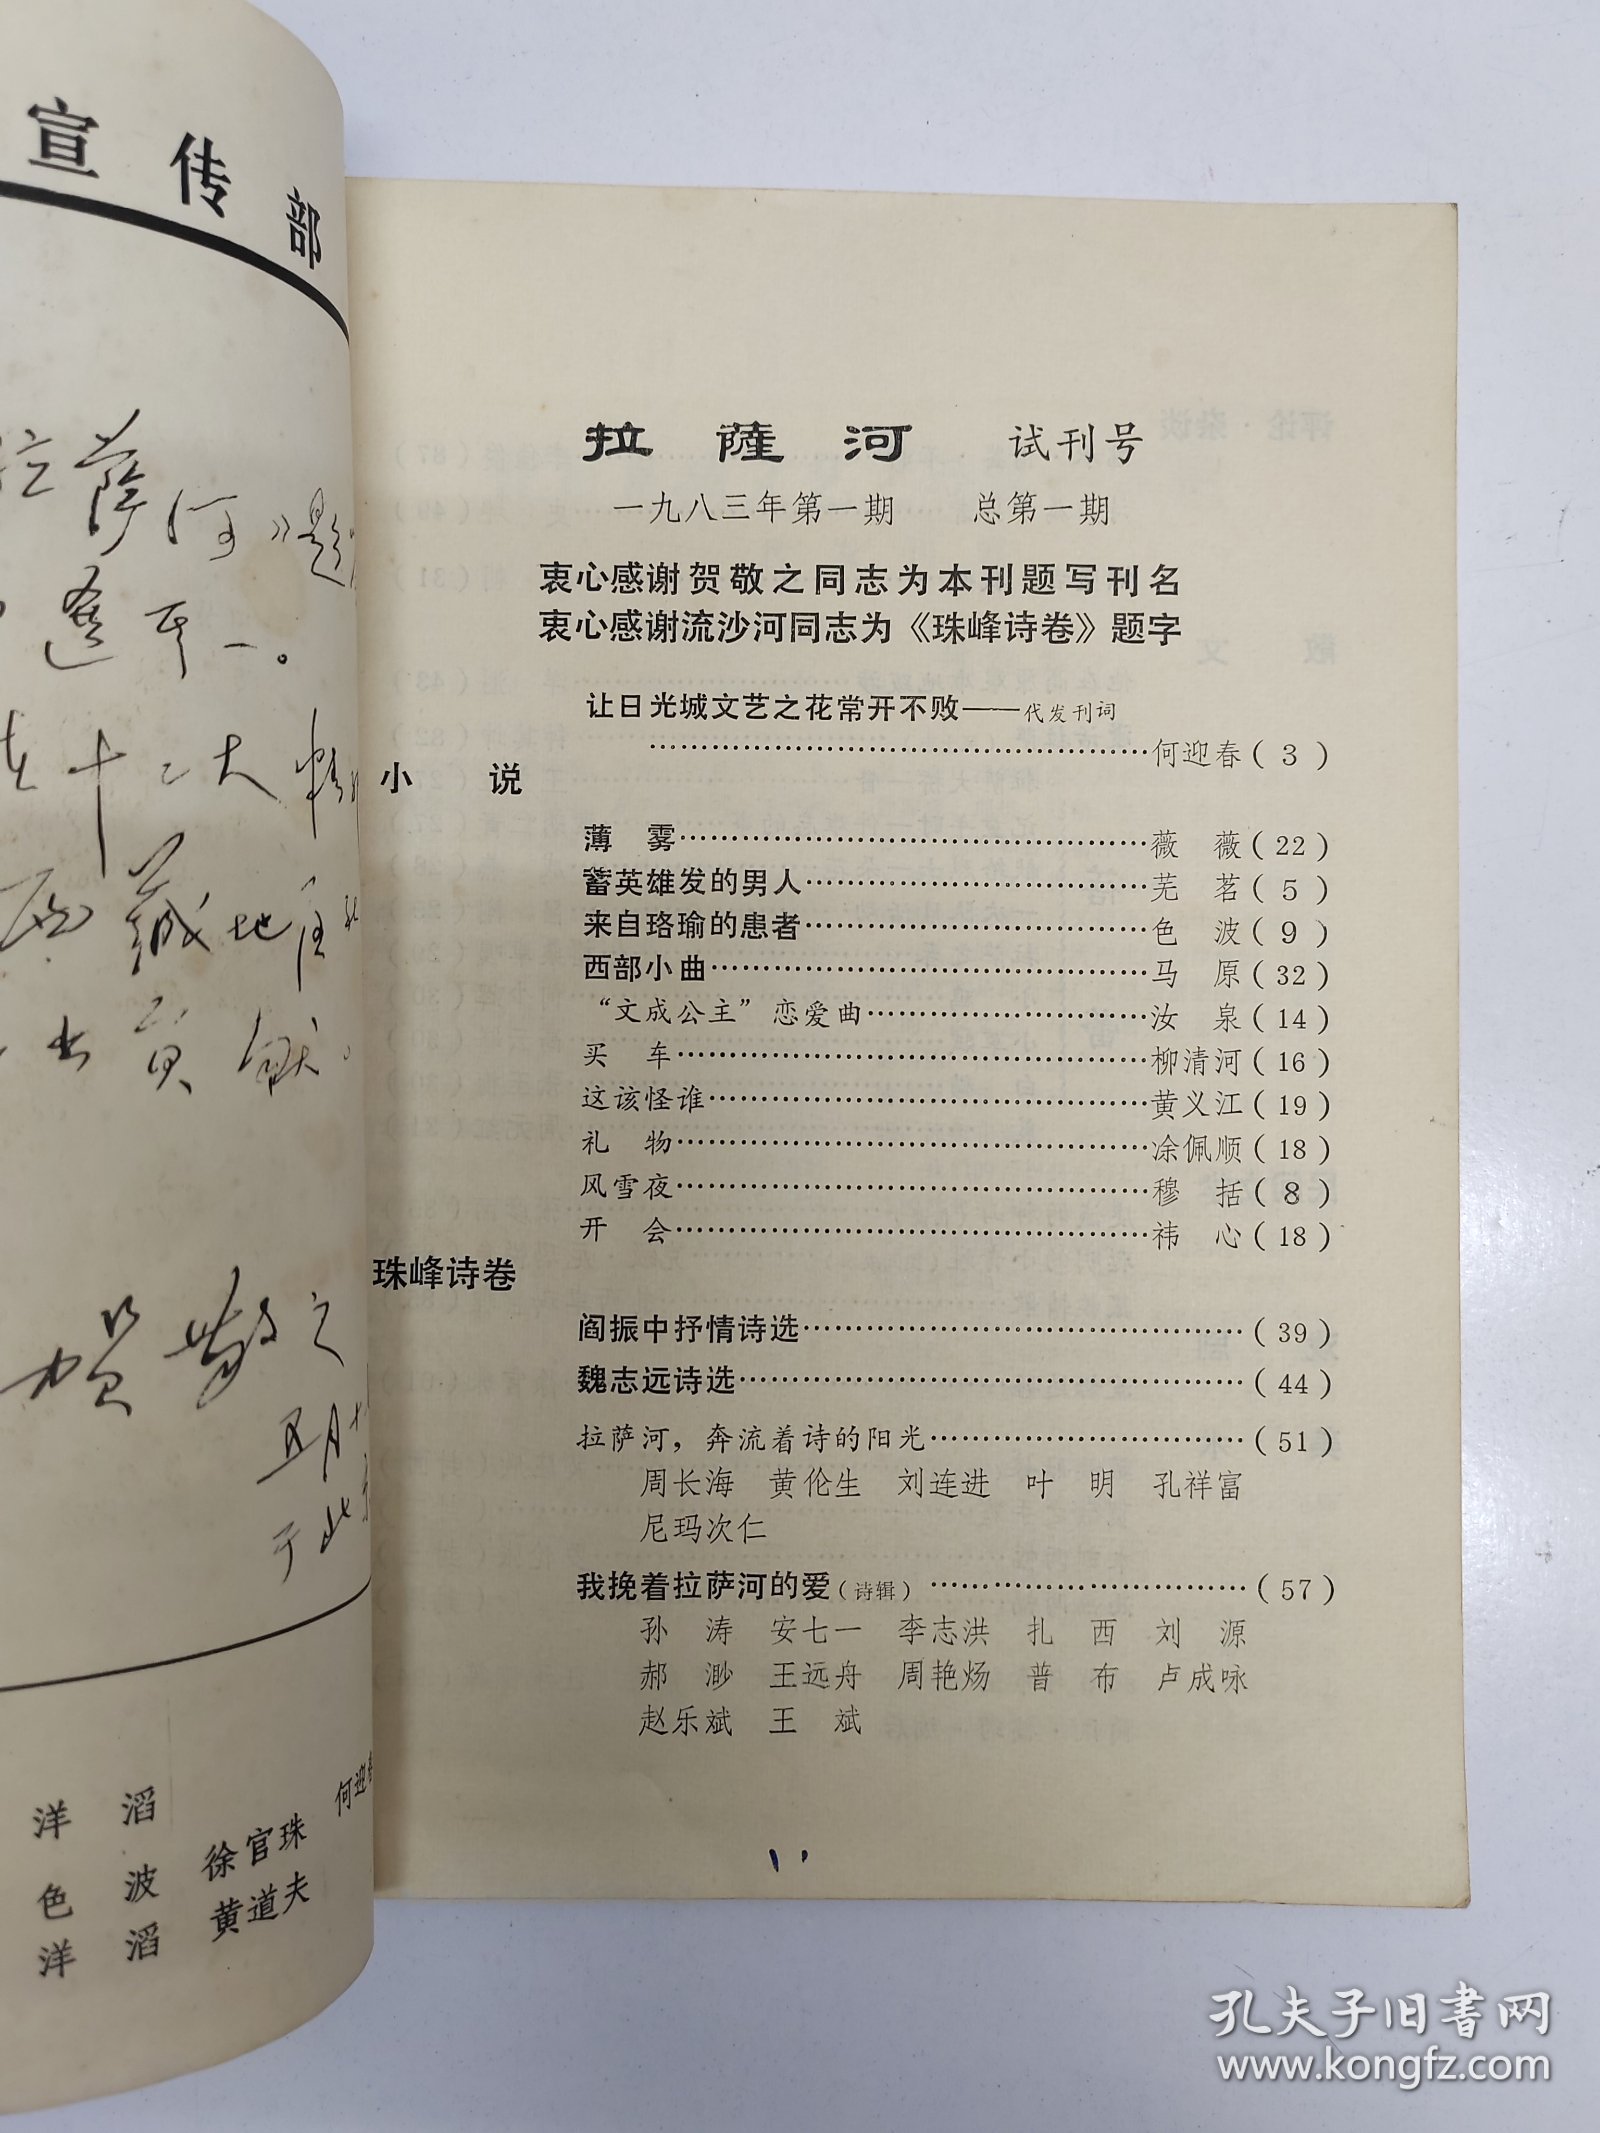 宣传部
萨河》题
一。
在十二大精
西藏地
出贡献。
贺敬之
于北京
洋 滔 何迎春
色 波 徐官珠
洋 滔 黄道夫
拉薩河 试刊号
一九八三年第一期 总第一期
衷心感谢贺敬之同志为本刊题写刊名
衷心感谢流沙河同志为《珠峰诗卷》题字
让日光城文艺之花常开不败——代发刊词
……………………………………何迎春(3)
小 说
薄 雾……………………………………薇 薇(22)
蓄英雄发的男人……………………………芜 茗(5)
来自珞瑜的患者……………………………色 波(9)
西部小曲…………………………………马 原(32)
“文成公主”恋爱曲………………………汝 泉(14)
买 车……………………………………柳清河(16)
这该怪谁…………………………………黄义江(19)
礼 物……………………………………涂佩顺(18)
风雪夜……………………………………穆 括(8)
开 会……………………………………祎 心(18)
珠峰诗卷
阎振中抒情诗选……………………………………(39)
魏志远诗选…………………………………………(44)
拉萨河，奔流着诗的阳光…………………………(51)
周长海 黄伦生 刘连进 叶 明 孔祥富
尼玛次仁
我挽着拉萨河的爱(诗辑)…………………………(57)
孙 涛 安七一 李志洪 扎 西 刘 源
郝 渺 王远舟 周艳炀 普 布 卢成咏
赵乐斌 王 斌
孔夫子旧书网
www.kongfz.com